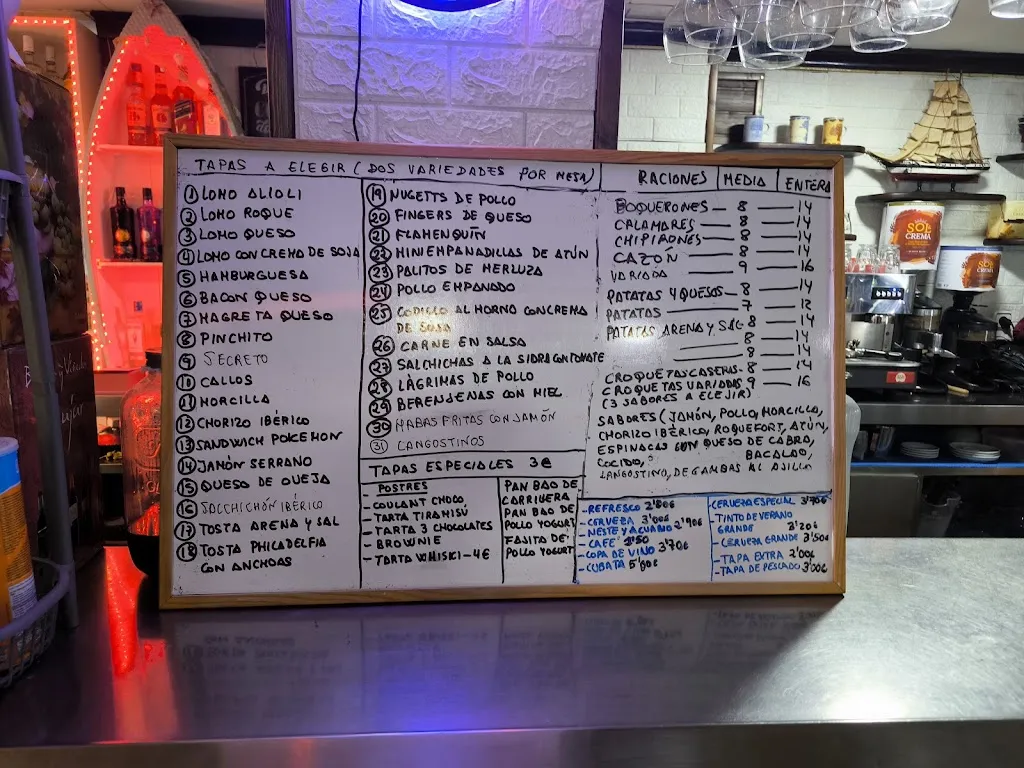 TAPAS A ELEGIR (DOS VARIEDADES POR MESA)
1 LOMO ALIOLI
2 LOMO ROQUE
3 LOMO QUESO
4 LOMO CON CREMA DE SOJA
5 HAMBURGUESA
6 BACON QUESO
7 MAGRETA QUESO
8 PINCHITO
9 SECRETO
10 CALLOS
11 MORCILLA
12 CHORIZO IBÉRICO
13 SANDWICH POKEMON
14 JAMÓN SERRANO
15 QUESO DE OVEJA
16 SALCHICHÓN IBÉRICO
17 TOSTA ARENA Y SAL
18 TOSTA PHILADELFIA
CON ANCHOAS
19 NUGETTS DE POLLO
20 FINGERS DE QUESO
21 FLAMENQUÍN
22 MINIEMPANADILLAS DE ATÚN
23 PALITOS DE MERLUZA
24 POLLO EMPANADO
25 CODILLO AL HORNO CON CREMA
DE SOJA
26 CARNE EN SALSA
27 SALCHICHAS A LA SIDRA CON TOMATE
28 LÀGRIMAS DE POLLO
29 BERENJENAS CON MIEL
30 HABAS FRITAS CON JAMÓN
31 LANGOSTINOS
TAPAS ESPECIALES 3€
POSTRES
- COULANT CHOCO
- TARTA TIRAMISÚ
- TARTA 3 CHOCOLATES
- BROWNIE
- TARTA WHISKI-4€
PAN BAO DE
CARRILLERA
PAN BAO DE
POLLO YOGURT
FAJITA DE
POLLO YOGURT
RACIONES MEDIA ENTERA
BOQUERONES 8 14
CALAMARES 8 14
CHIPIRONES 8 14
CAZÓN 8 14
VARIADA 9 16
PATATAS 4 QUESOS 8 14
PATATAS 7 12
PATATAS ARENA Y SAL 8 14
8 14
CROQUETAS CASERAS 8 14
CROQUETAS VARIADAS 9 16
(3 SABORES A ELEJIR)
SABORES (JAMÓN, POLLO, MORCILLA,
CHORIZO IBÈRICO, ROQUEFORT, ATÚN,
ESPINACAS CON QUESO DE CABRA,
COCIDO, BACALAO,
LANGOSTINO, DE GAMBAS AL AJILLO
- REFRESCO 2'80€
- CERVEZA 3'00€
- NESTE Y ACUARIO 2'90€
- CAFE 1'50
- COPA DE VINO 3'70€
- CUBATA 5'00€
- CERVEZA ESPECIAL 3'70€
- TINTO DE VERANO
GRANDE 3'20€
- CERVEZA GRANDE 3'50€
- TAPA EXTRA 2'00€
- TAPA DE PESCADO 3'00€
SOL
CREMA
SOL
CREMA